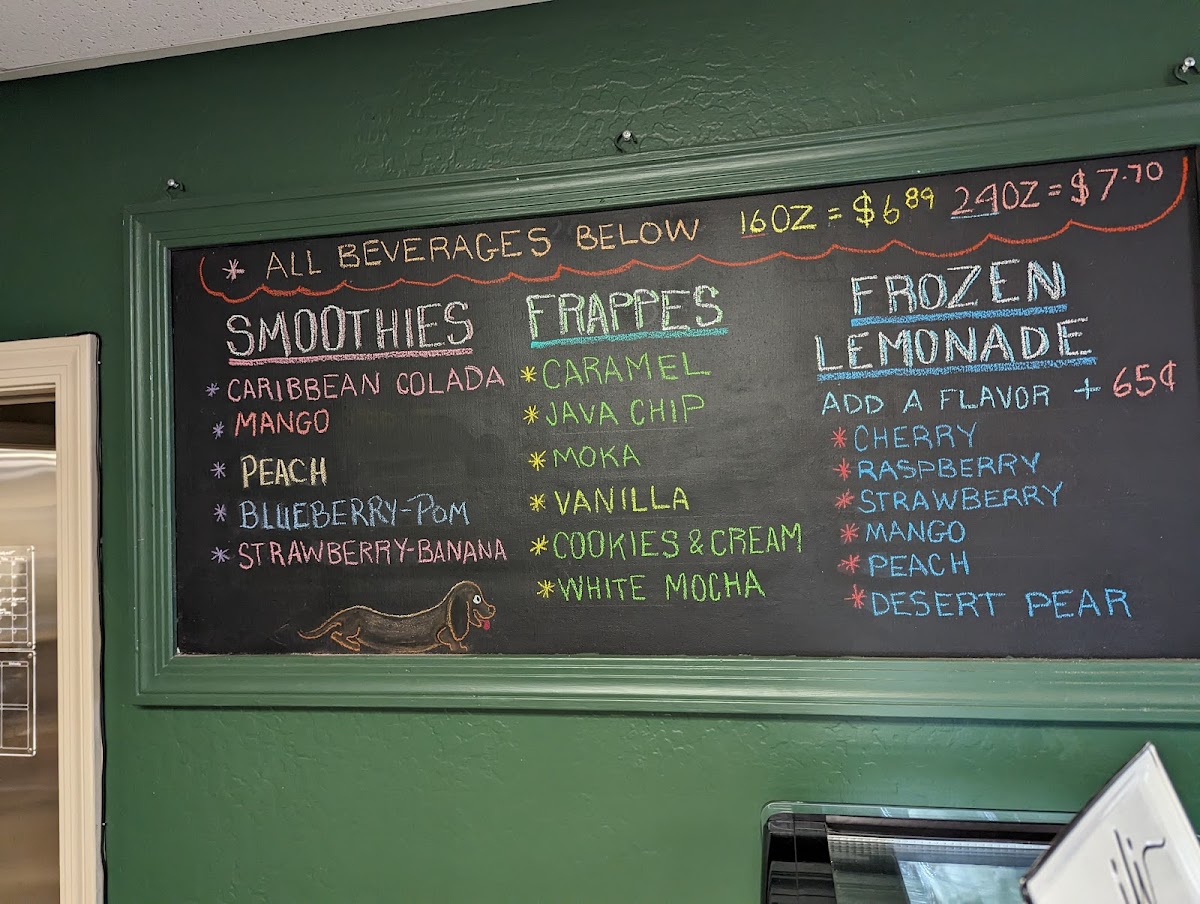 * ALL BEVERAGES BELOW 16OZ = $6.89 24OZ = $7.70
SMOOTHIES
* CARIBBEAN COLADA
* MANGO
* PEACH
* BLUEBERRY-POM
* STRAWBERRY-BANANA
FRAPPES
* CARAMEL
* JAVA CHIP
* MOKA
* VANILLA
* COOKIES & CREAM
* WHITE MOCHA
FROZEN
LEMONADE
ADD A FLAVOR + 65¢
* CHERRY
* RASPBERRY
* STRAWBERRY
* MANGO
* PEACH
* DESERT PEAR